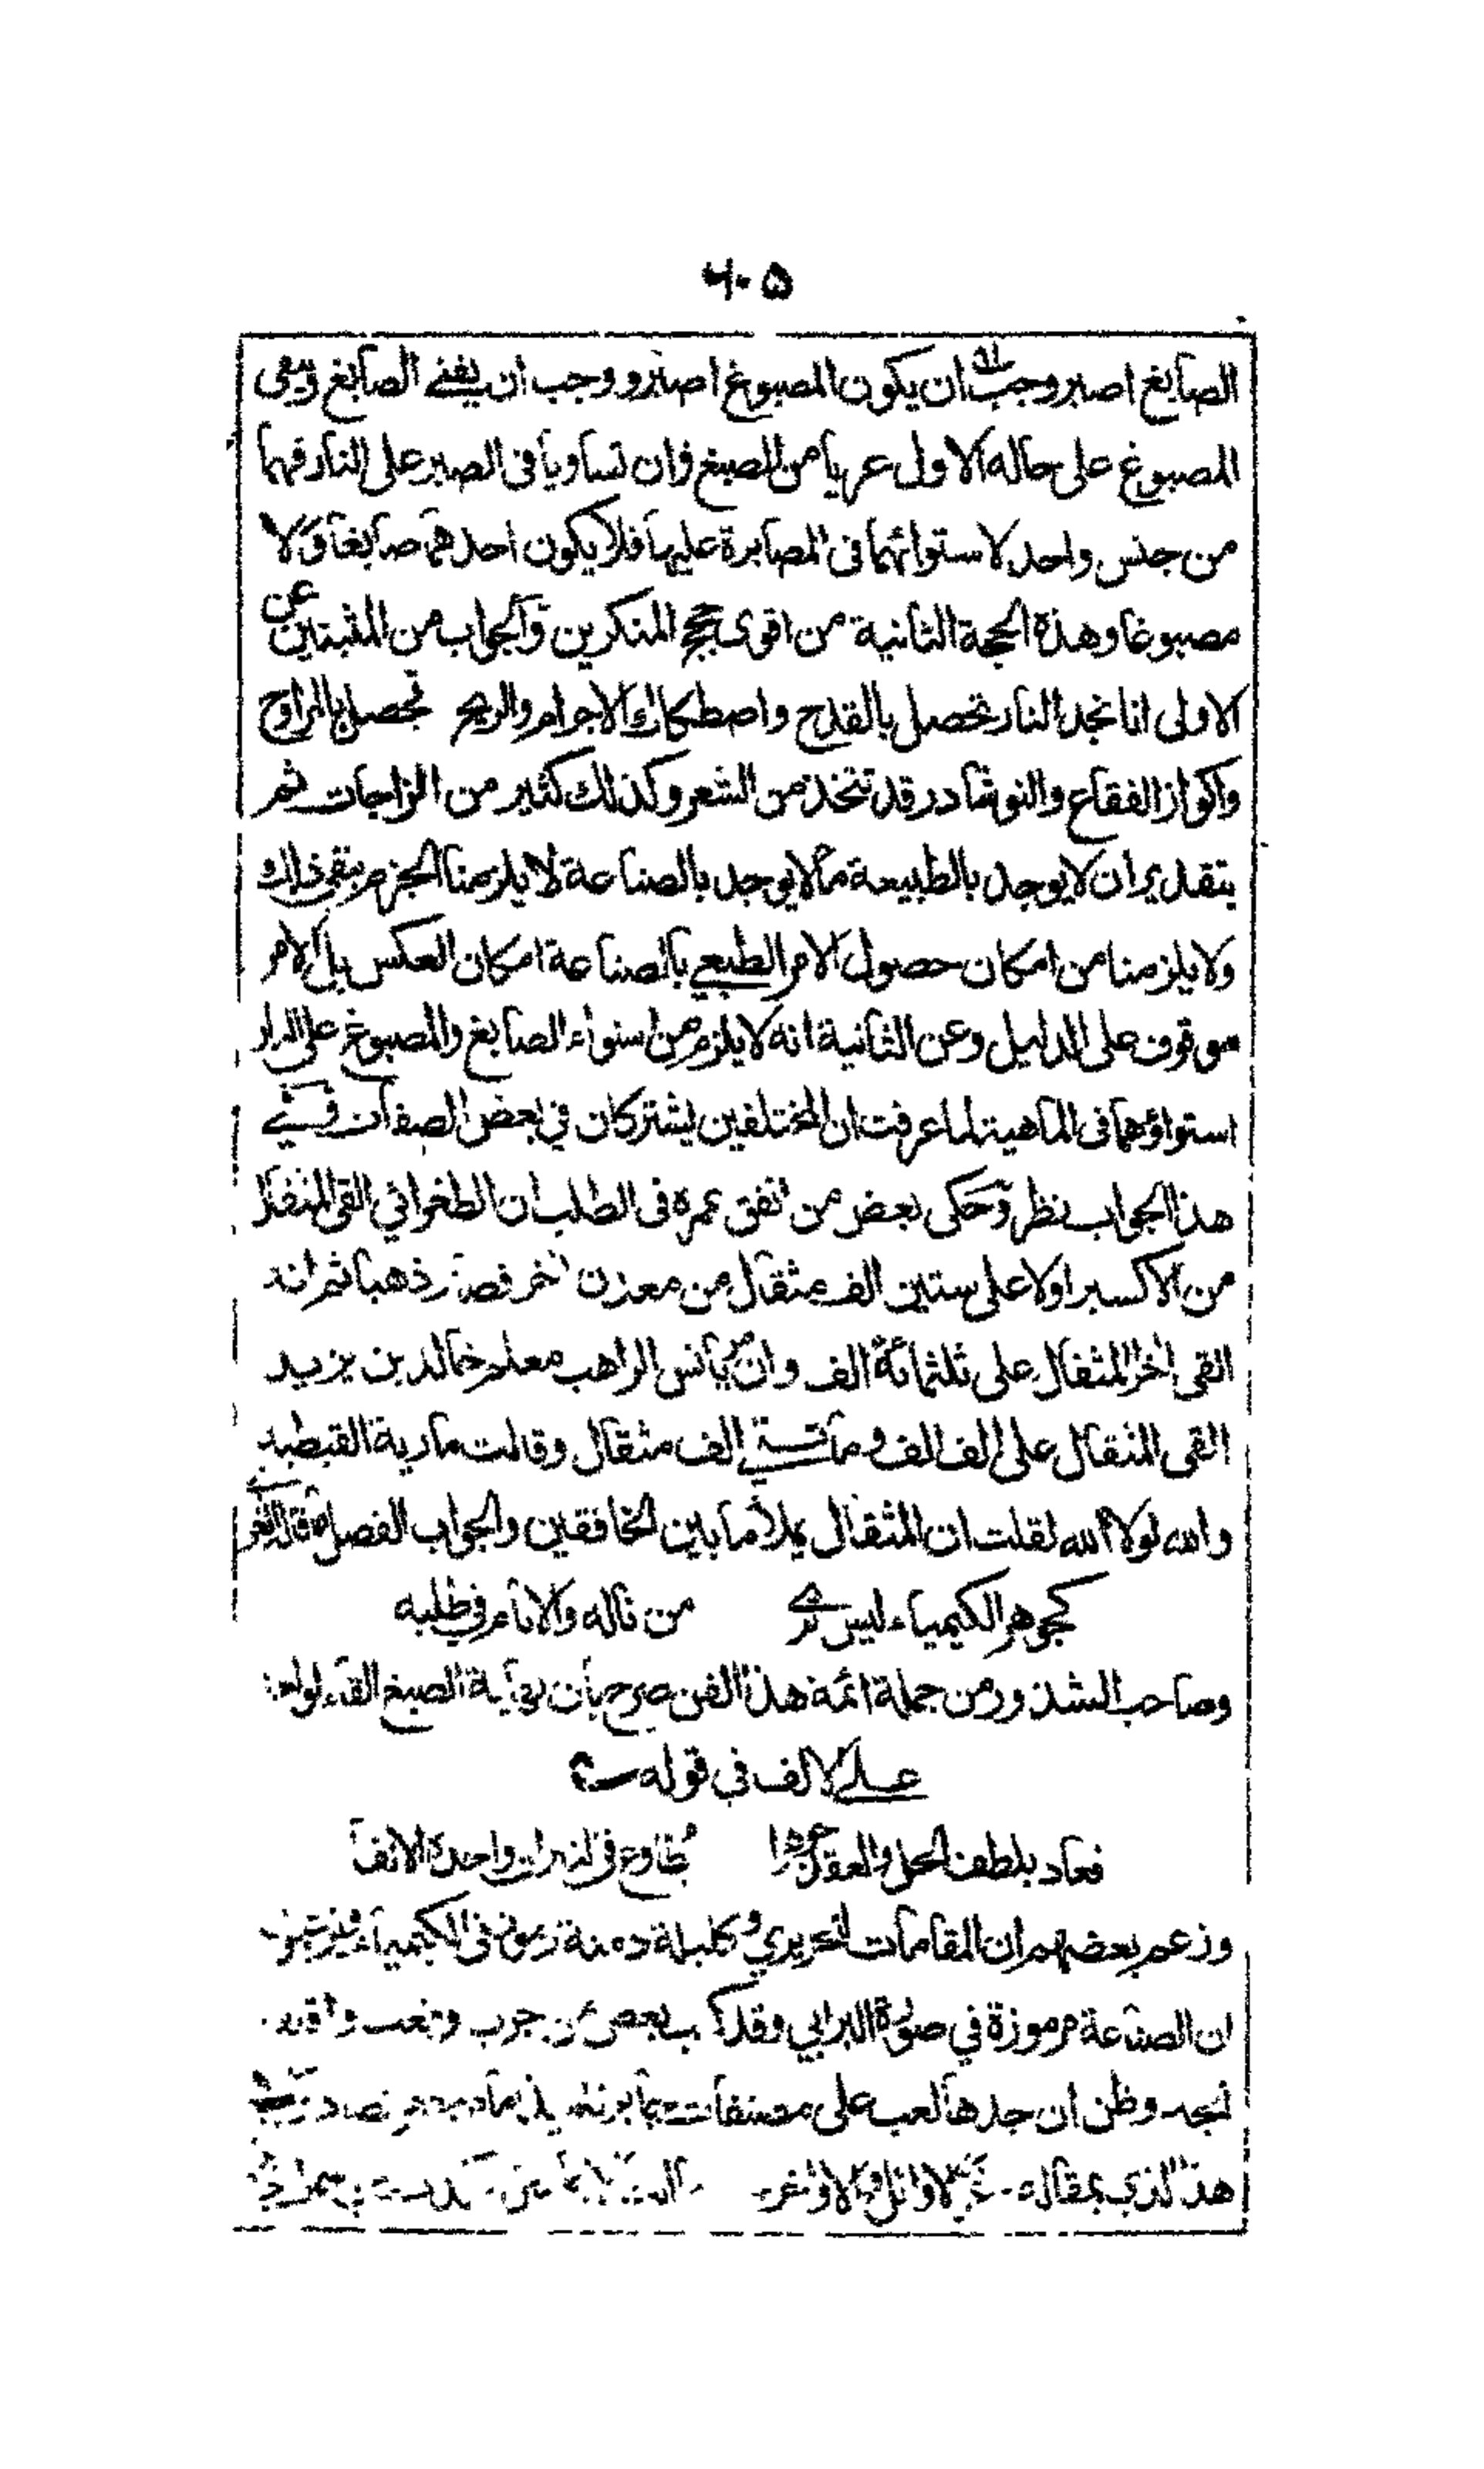 ٦٠٥
الصابغ اصبر وجب ان يكون المصبوغ اصبر ووجب ان يفنے الصابغ ويبقى
المصبوغ على حاله الاول عريا من الصبغ وان تساويا فى الصبر على النار فهما
من جنس واحد لاستوائهما فى المصابرة عليها فلا يكون احدهما صابغا ولا
مصبوغا وهذة الحجة الثانية من اقوى حجج المنكرين والجواب من المثبتين عن
الاولى انا نجد النار تحصل بالقدح واصطكاك الاجرام والريح تحصل بالمراوح
واكواز الفقاع والنوشادر قد تتخذ من الشعر وكذلك كثير من الزاجات ثم
بتقدير ان لا يوجد بالطبيعة ما لا يوجد بالصناعة لا يلزمنا الجزم بنفى ذلك
ولا يلزمنا من امكان حصول الامر الطبعي بالصناعة امكان العكس بل الامر
موقوف على الدليل وعن الثانية انه لا يلزم من استواء الصابغ والمصبوغ على النار
استواؤهما فى الماهية لما عرفت ان المختلفين يشتركان في بعض الصفات وفے
هذا الجواب نظر وحكى بعض من انفق عمره فى الطلب ان الطغرائي القى المثقال
من الاكسير اولا على ستين الف مثقال من معدن اخر فصار ذهبا ثم انه
القى اخر المثقال على ثلثمائة الف وان مريانس الراهب معلم خالد بن يزيد
القى المثقال على الف الف ومأتے الف مثقال وقالت مارية القبطية
والله لولا الله لقلت ان المثقال يملأ ما بين الخافقين والجواب الفصل ما قاله الغزي
كجوهر الكيمياء ليس ترے من ناله والانام في طلبه
وصاحب الشذور من جملة ائمة هذا الفن صرح بان نهاية الصبغ القاء الواحد
علے الالف في قوله
فعاد بلطف الحل والعقد جوهرا يطاوع فى النيران واحدة الالفا
وزعم بعضهم ان المقامات للحريري وكليلة دمنة رموز فى الكيمياء ويزعمون
ان الصناعة مرموزة في صورة البرابي وقد كتب بعض من جرب وتعب واقلقه
الجد وظن ان جدها لعب على مصنفات جابر
هذا الذي بمقاله غر الاوائل والاواخر